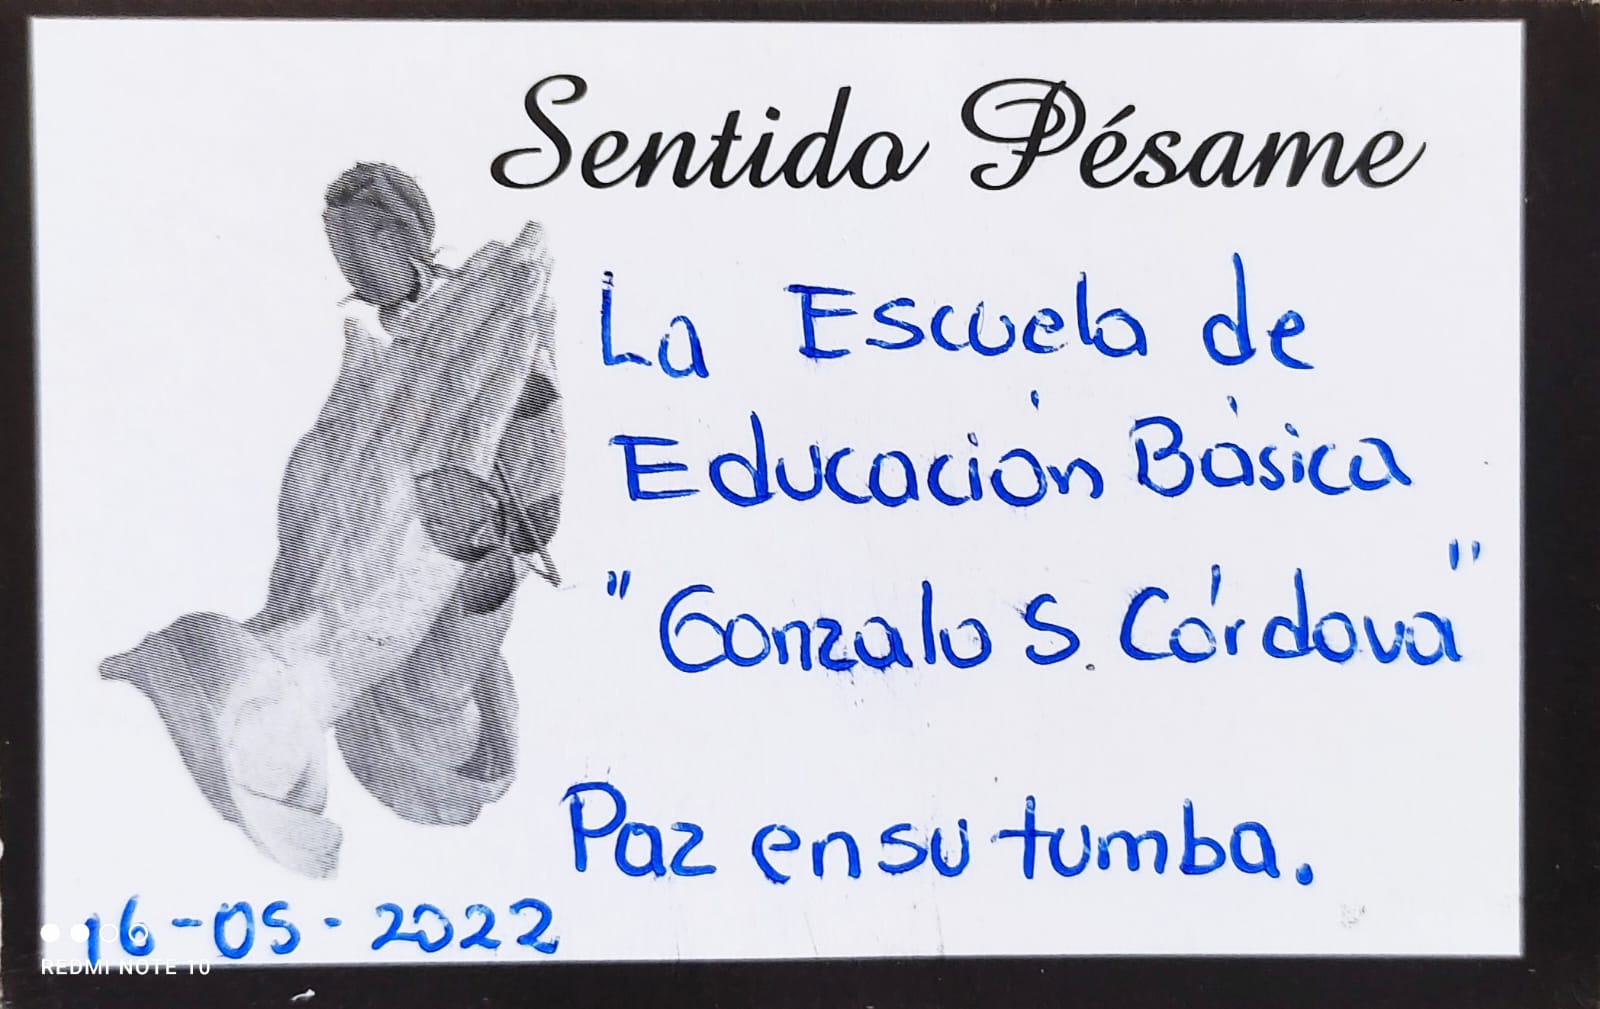 Sentido Pésame
La Escuela de
Educación Básica
"Gonzalo S. Córdova"
Paz en su tumba.
16-05-2022
REDMI NOTE 10